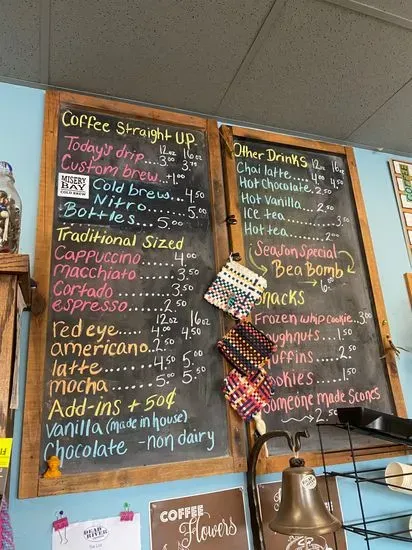 Coffee Straight UP
12oz 16oz
Today's drip....3.00 3.75
Custom brew...+1.00
MISERY BAY
COLD BREW
Cold brew...4.50
Nitro.......5.00
Bottles.....5.00
Traditional Sized
Cappuccino......4.00
macchiato.......3.50
Cortado........3.50
espresso.......2.50
12oz 16oz
red eye.......4.00 4.50
americano..2.50
latte.........4.50 5.00
mocha.......5.00 5.50
Add-ins + 50¢
Vanilla (made in house)
Chocolate -non dairy
Other Drinks
12oz 16oz
Chai latte....4.00 4.50
Hot Chocolate..2.50
Hot Vanilla......
Ice tea.........2.50
Hot tea..........2.00
Season Special
Bea Bomb
6.00
Snacks
Frozen whip cookie..3.00
Doughnuts....1.50
Muffins.....2.50
Cookies.....1.50
Someone made Scones
~2.50
BEAR RIVER
COFFEE
Flowers